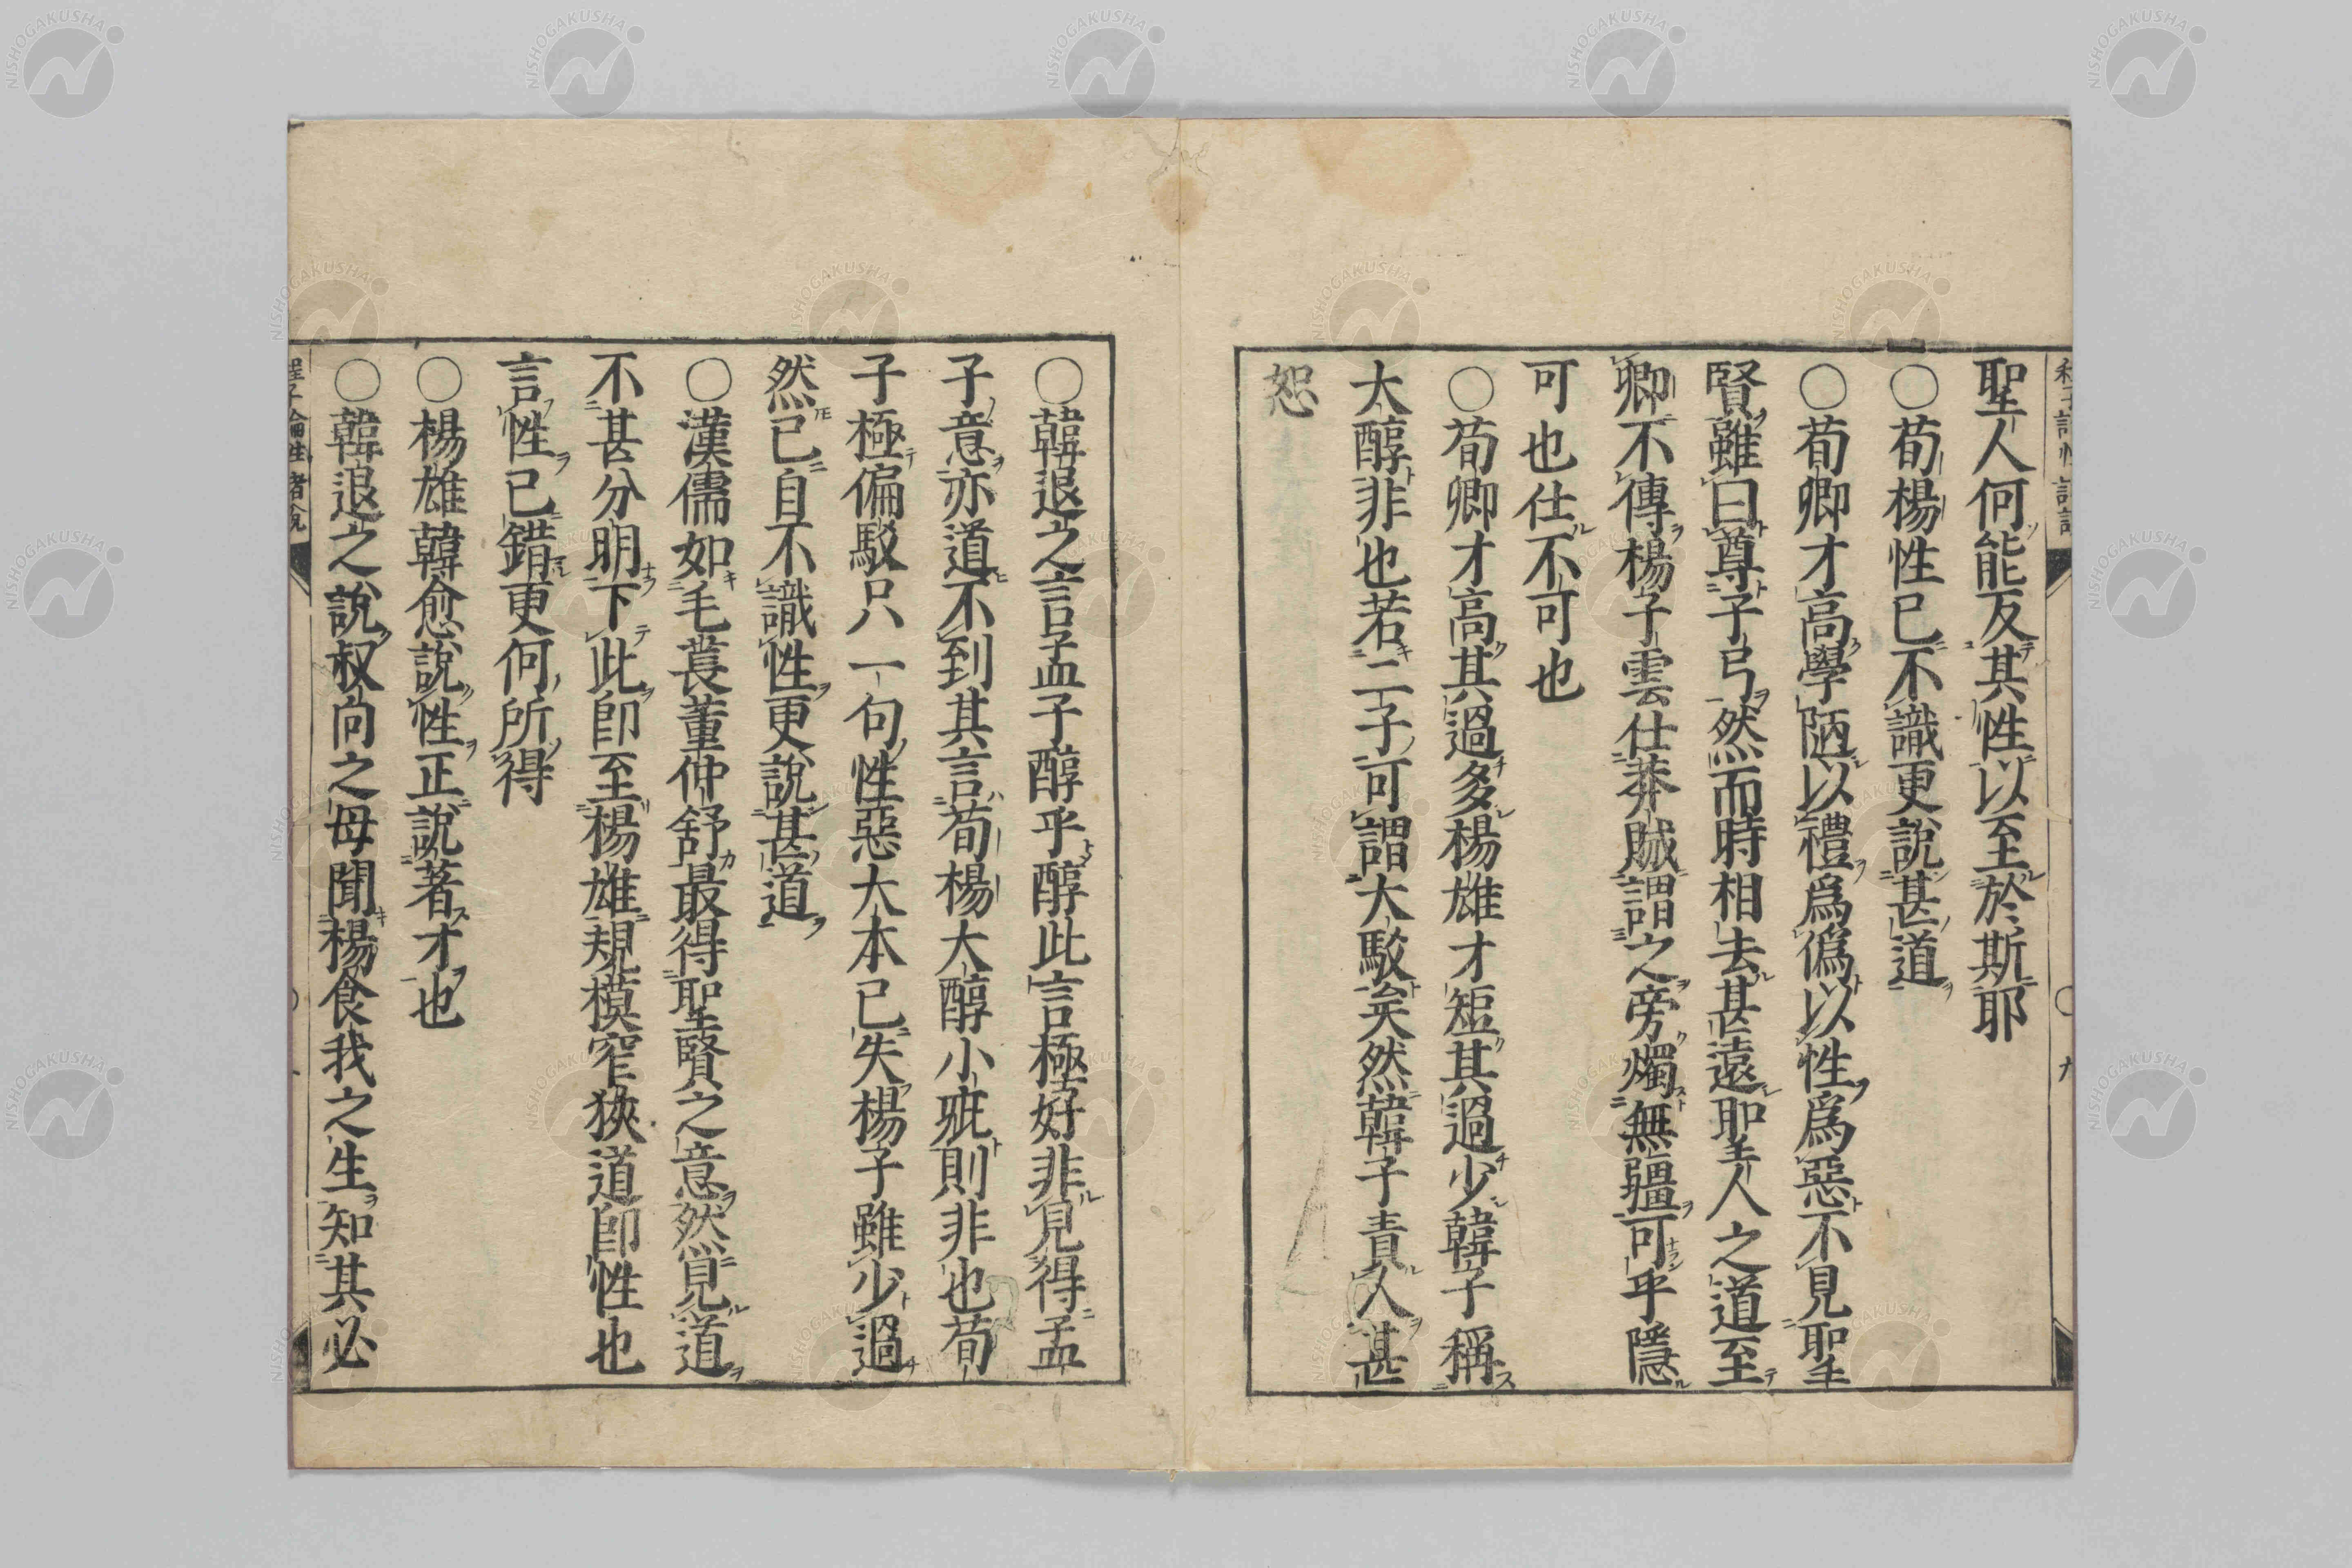 聖人何能反其性以至於斯耶
〇荀楊性已不識更說甚道
〇荀卿才高學陋以禮爲僞以性爲惡不見聖
賢雖曰尊子弓然而時相去甚遠聖人之道至
卿不傳楊子雲仕莽賊謂之旁燭無疆可乎隱
可也仕不可也
〇荀卿才高其過多楊雄才短其過少韓子稱
大醇非也若二子可謂大駁矣然韓子責人甚
恕
〇韓退之言孟子醇乎醇此言極好非見得孟
子意亦道不到其言荀楊大醇小疵則非也荀
子極偏駁只一句性惡大本已失楊子雖少過
然已自不識性更說甚道
〇漢儒如毛萇董仲舒最得聖賢之意然見道
不甚分明下此即至楊雄規模窄狹道即性也
言性已錯更何所得
〇楊雄韓愈說性正說著才也
〇韓退之說叔向之母聞楊食我之生知其必
程子論性諸說
NISHOGAKUSHA